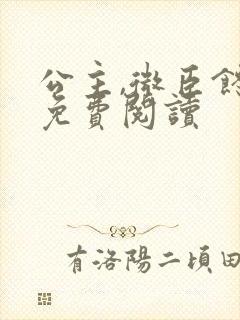 公主,微臣餓
免費閱讀
有洛陽二頃田